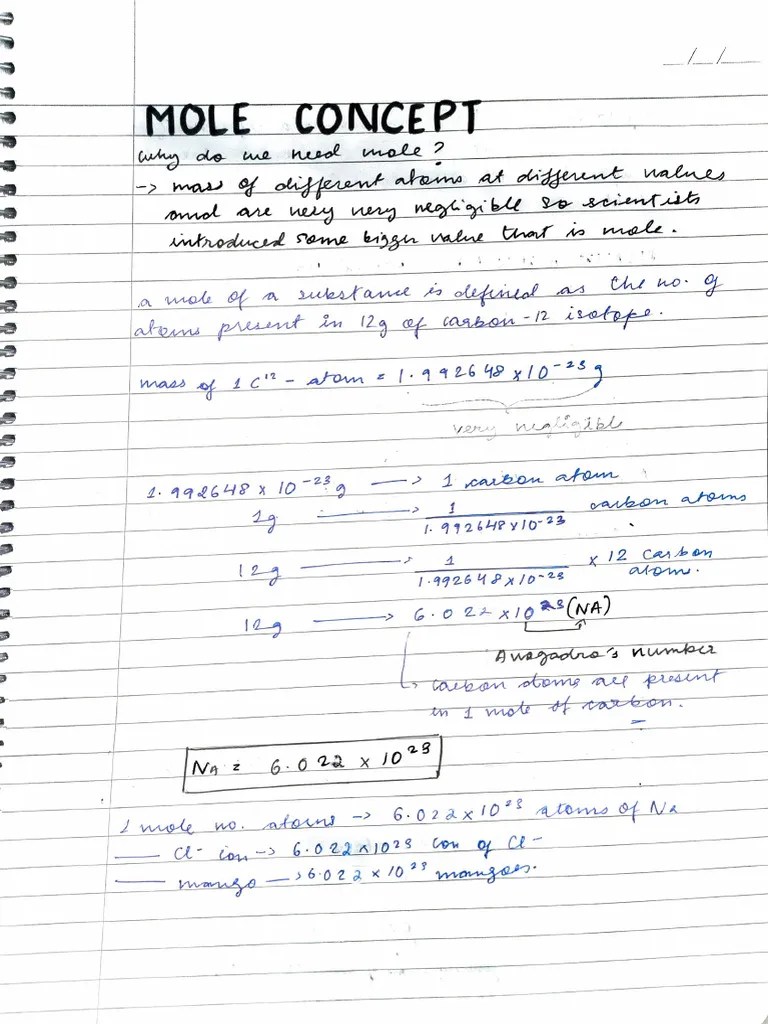 __/__/__
MOLE CONCEPT
why do we need mole?
-> mass of different atoms at different values
and are very very negligible so scientists
introduced some bigger value that is mole.
a mole of a substance is defined as the no. of
atoms present in 12g of carbon-12 isotope.
mass of 1 C¹² - atom = 1.992648 × 10⁻²³ g
very negligible
1.992648 × 10⁻²³ g → 1 carbon atom
1g → 1/1.992648×10⁻²³ carbon atoms
12g → 1/1.992648×10⁻²³ × 12 carbon
atom.
12g → 6.022 × 10²³ (NA)
Avogadro's number
carbon atoms are present
in 1 mole of carbon.
NA = 6.022 × 10²³
1 mole no. atoms -> 6.022×10²³ atoms of Na
—— Cl⁻ ion -> 6.022×10²³ ion of Cl⁻
—— mango —> 6.022 × 10²³ mangoes.